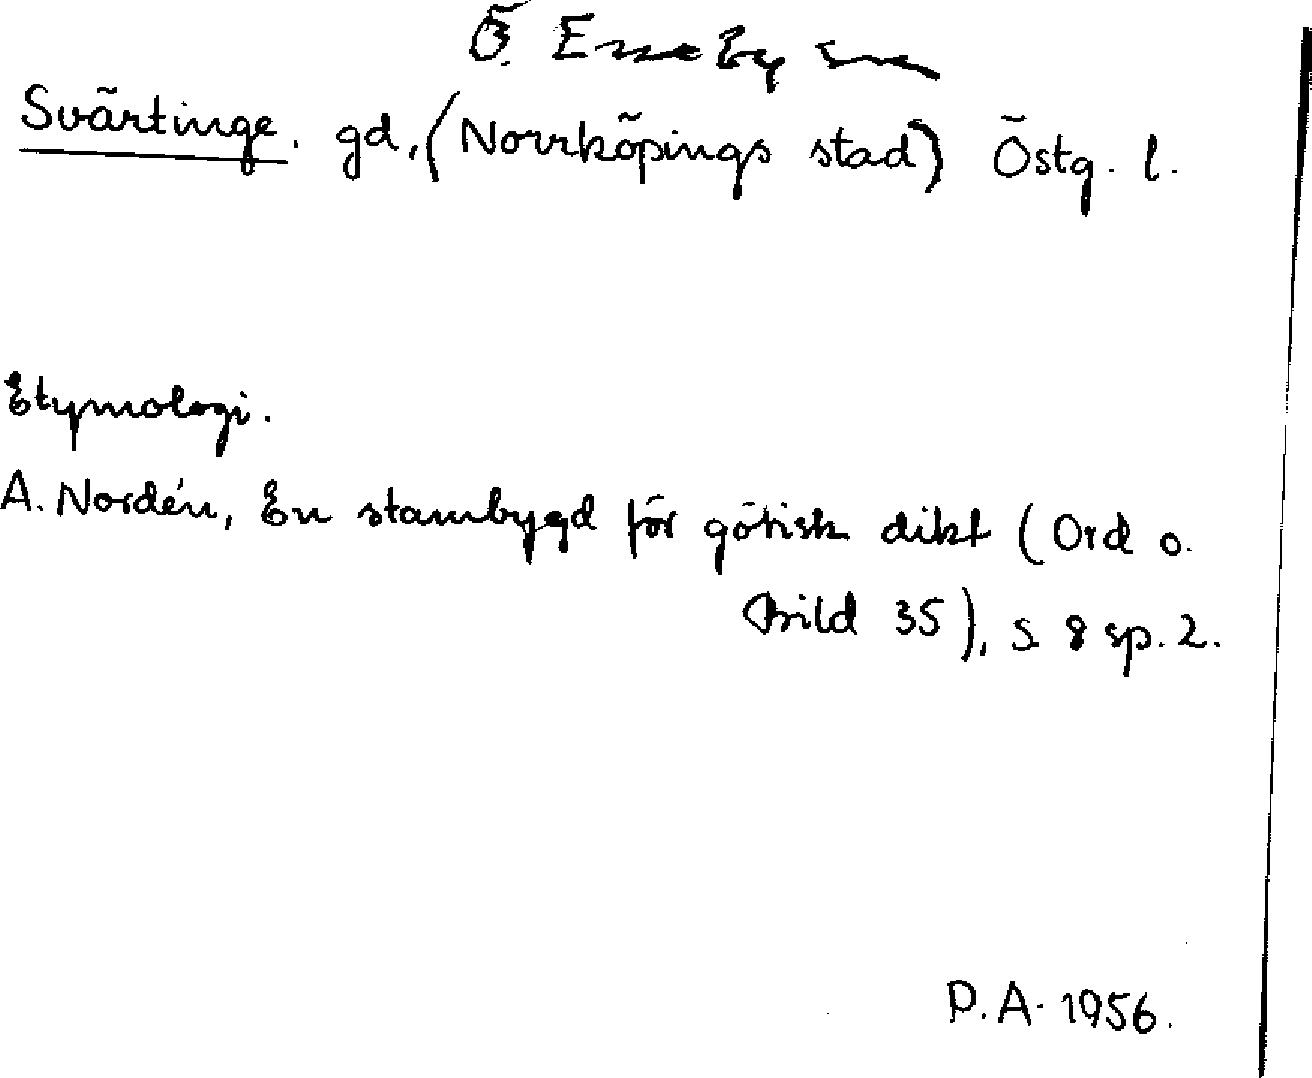 Ö. Eneby sn
Svärtinge. gd, (Norrköpings stad) Östg. l.
Etymologi.
A. Nordén, En stambygd för götisk dikt (Ord o.
Bild 35), s 8 sp. 2.
D. A. 1956.